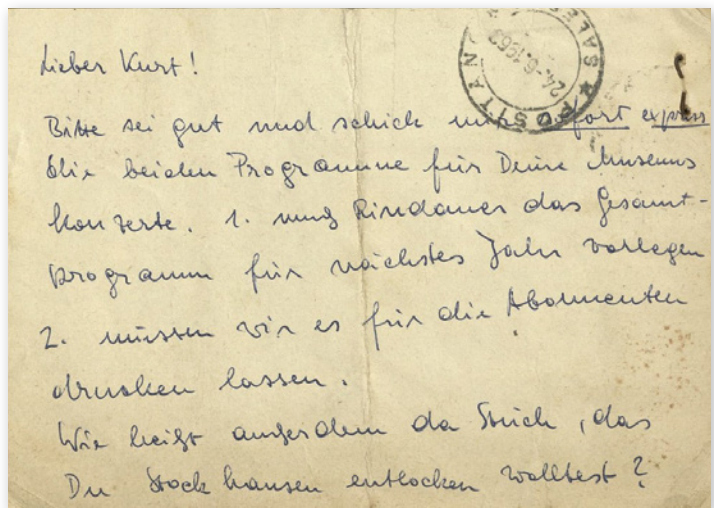 Lieber Kurt!
Bitte sei gut und schick mir sofort express
die beiden Programme für Deine Museums
konzerte. 1. muß das Gesamt-
programm für nächstes Jahr vorlegen
2. müssen wir es für die Abonnenten
drucken lassen.
Wie heißt außerdem da Stück, das
Du Stockhausen entlocken wolltest?
POSITANO
SALE
24.-6.196